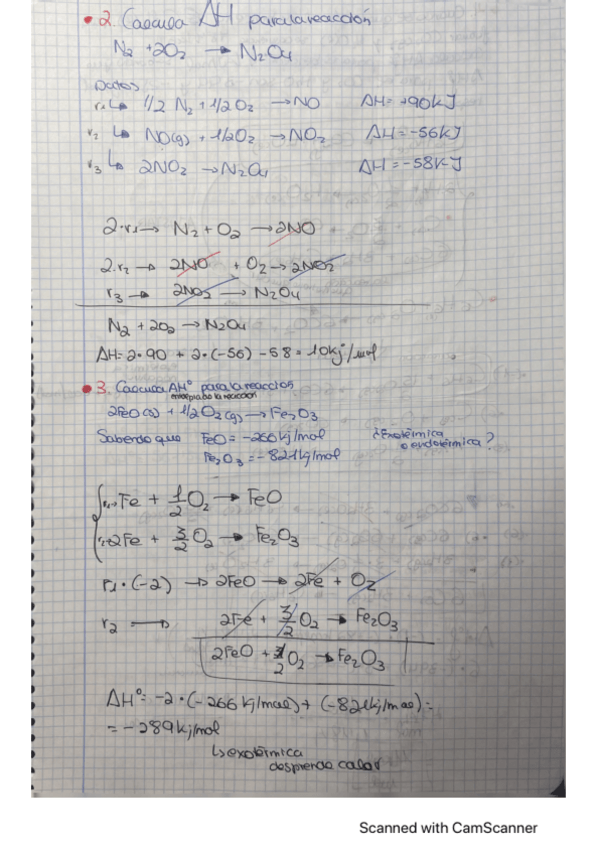 2. Calcula ΔH para la reacción
N₂ + 2O₂ → N₂O₄
Datos
r₁ ↳ 1/2 N₂ + 1/2 O₂ → NO ΔH = +90kJ
r₂ ↳ NO(g) + 1/2O₂ → NO₂ ΔH = -56kJ
r₃ ↳ 2NO₂ → N₂O₄ ΔH = -58kJ
2·r₁ → N₂ + O₂ → 2NO
2·r₂ → 2NO + O₂ → 2NO₂
r₃ → 2NO₂ → N₂O₄
N₂ + 2O₂ → N₂O₄
ΔH = 2·90 + 2·(-56) - 58 = 10kj/mol
3. Calcula ΔH° para la reacción
entalpia de la reacción
2FeO(s) + 1/2 O₂(g) → Fe₂O₃
Sabiendo que FeO = -266kj/mol ¿Exotérmica
Fe₂O₃ = -821kj/mol o endotérmica?
r₁→ Fe + 1/2 O₂ → FeO
2Fe + 3/2 O₂ → Fe₂O₃
r₁·(-2) → 2FeO → 2Fe + O₂
r₂ → 2Fe + 3/2 O₂ → Fe₂O₃
2FeO + 1/2 O₂ → Fe₂O₃
ΔH° = -2·(-266 kj/mol) + (-821kj/mol) =
= -289kj/mol
↳ exotérmica
desprende calor
Scanned with CamScanner